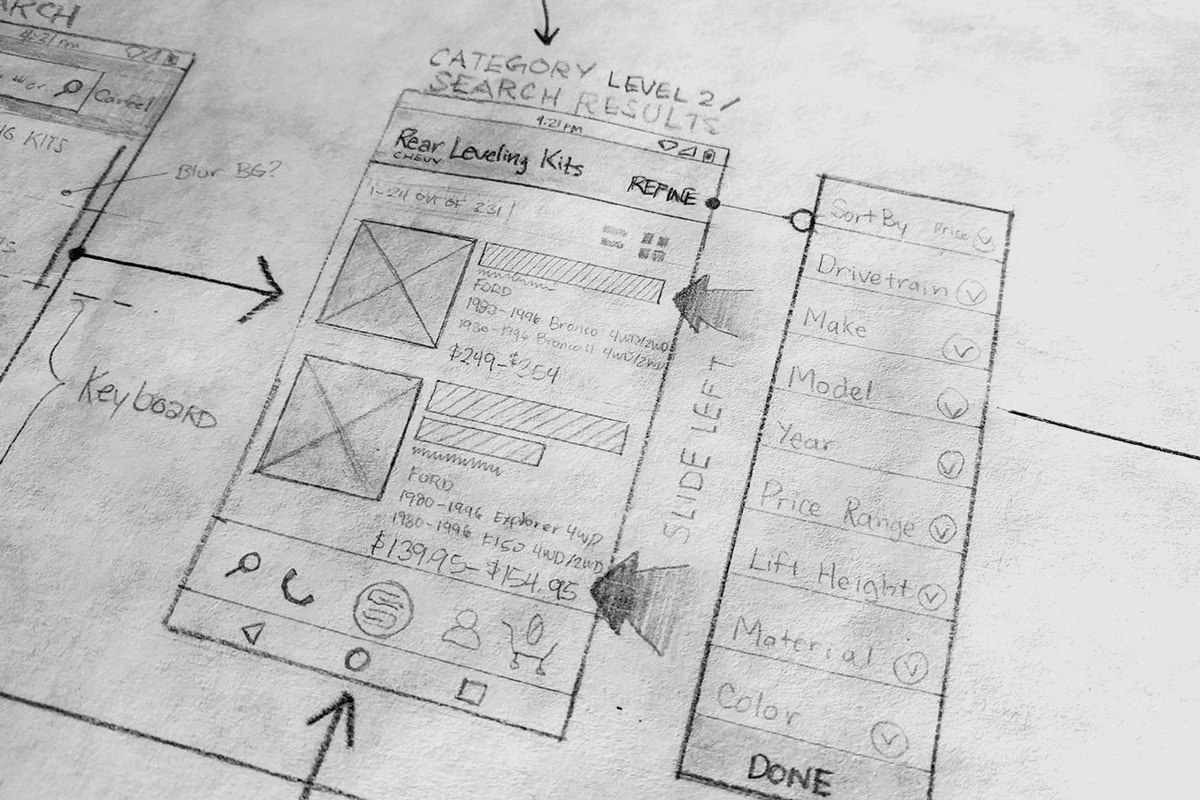 ARCH
4:21 PM
Cancel
KITS
Blur BG?
Keyboard
CATEGORY LEVEL 2/
SEARCH RESULTS
4:21 PM
Rear Leveling Kits
CHEVY
REFINE
1-24 OUT OF 231
FORD
1980-1996 Bronco 4WD/2WD
1980-1996 Bronco II 4WD/2WD
$249-$254
FORD
1980-1996 Explorer 4WD
1980-1996 F150 4WD/2WD
$139.95-$154.95
SLIDE LEFT
Sort By Price
Drivetrain
Make
Model
Year
Price Range
Lift Height
Material
Color
DONE